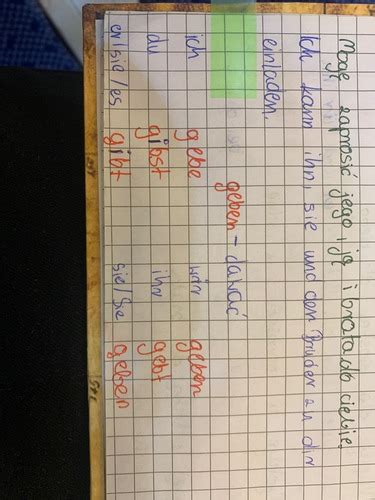 Mogę zaprosić jego i ją i brata do ciebie.
Ich kann ihn, sie und den Bruder zu dir
einladen.
geben - dawać
ich gebe wir geben
du gibst ihr gebt
er/sie/es gibt sie/Sie geben